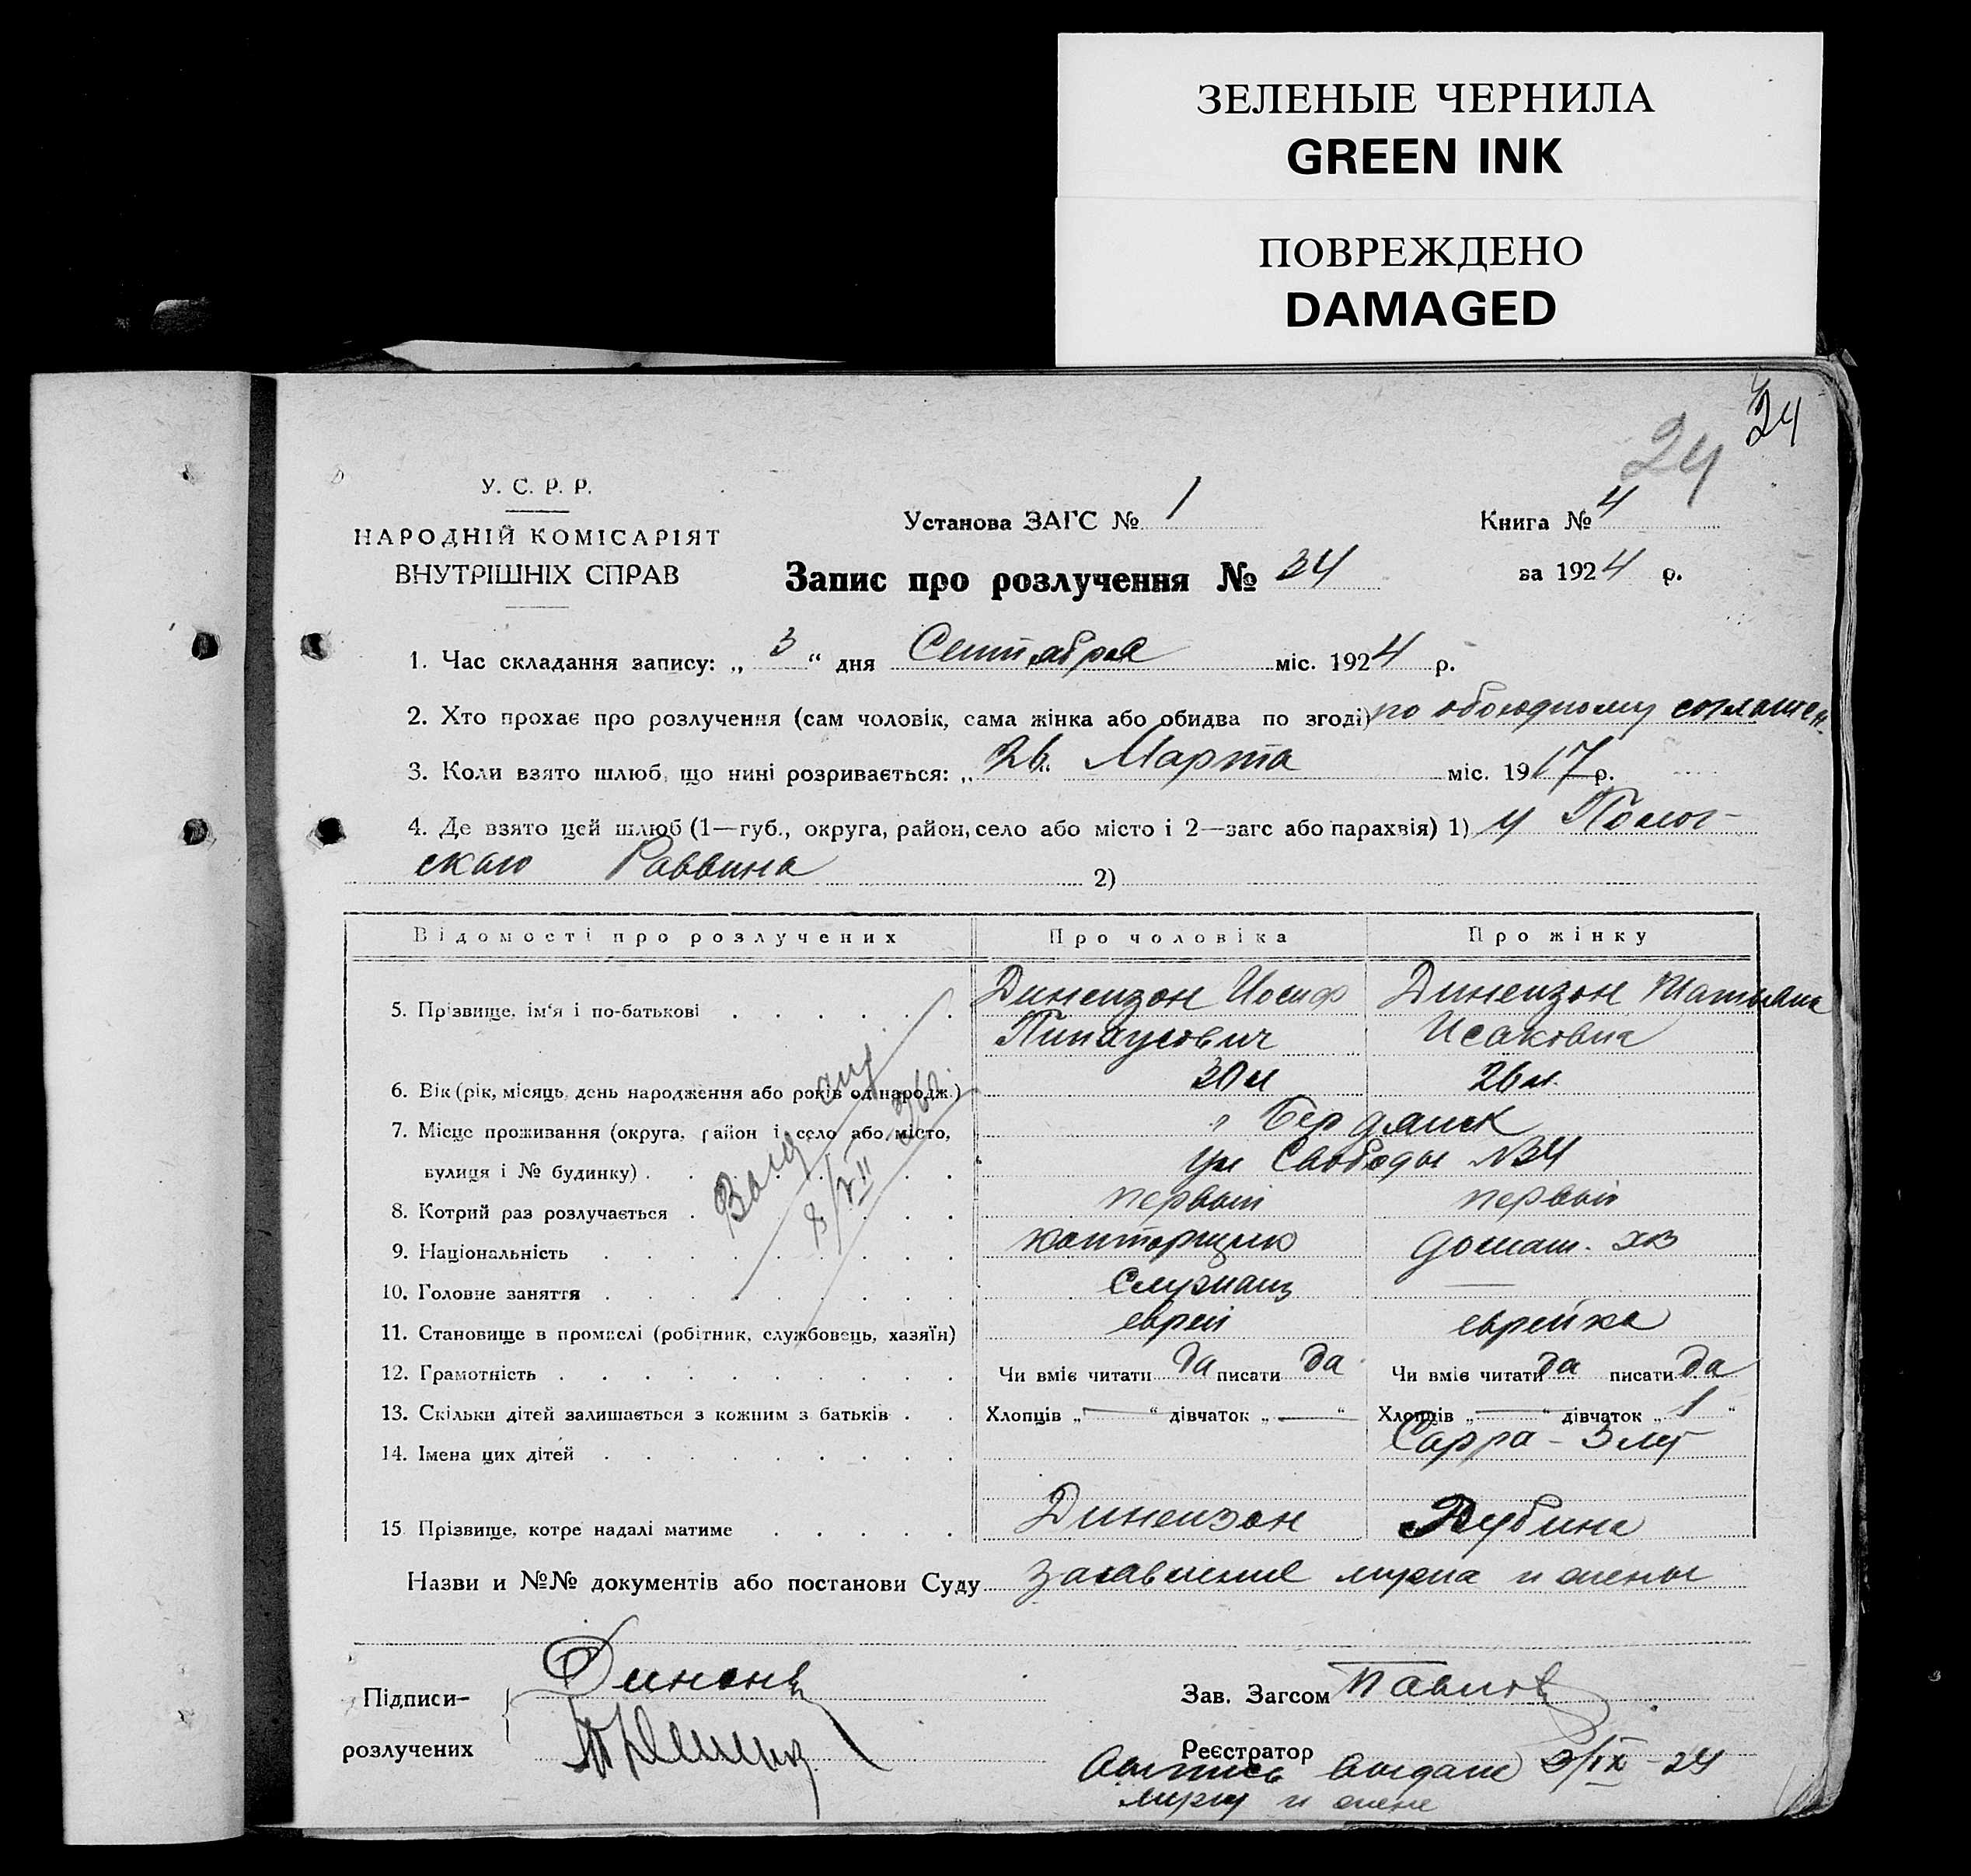 ЗЕЛЕНЫЕ ЧЕРНИЛА
GREEN INK
ПОВРЕЖДЕНО
DAMAGED
24
24
У. С. Р. Р.
НАРОДНІЙ КОМІСАРІЯТ
ВНУТРІШНІХ СПРАВ
Установа ЗАГС № 1
Книга № 4
Запис про розлучення № 34
за 1924 р.
1. Час складання запису: „ 3 “ дня Сентября міс. 1924 р.
2. Хто прохає про розлучення (сам чоловік, сама жінка або обидва по згоді) по обоюдному соглашен.
3. Коли взято шлюб, що нині розривається: „ 26 “ Марта міс. 1917 р.
4. Де взято цей шлюб (1—губ., округа, район, село або місто і 2—загс або парахвія) 1) у Полог-
скаго Раввина 2)
Відомості про розлучених Про чоловіка Про жінку
5. Прізвище, ім'я і по-батькові Динензон Иосиф Динензон Татьяна
Исаковна
6. Вік (рік, місяць, день народження або років од народж.) 30 л 26 л.
7. Місце проживання (округа, район і село або місто, Бердянск
булиця і № будинку) ул Свободы №34
8. Котрий раз розлучається первый первый
9. Національність конторщик домаш. хоз
10. Головне заняття Служащ —
11. Становище в промислі (робітник, службовець, хазяїн) еврей еврейка
12. Грамотність Чи вміє читати да писати да Чи вміє читати да писати да
13. Скільки дітей залишається з кожним з батьків Хлопців „—“ дівчаток „—“ Хлопців „—“ дівчаток „1“
14. Імена цих дітей Сарра – 3 лет
15. Прізвище, котре надалі матиме Динензон Рубина
Назви и №№ документів або постанови Суду заявление мужа и жены
Підписи— Зав. Загсом
розлучених Реєстратор
выдана 3/IX – 24
мужу и жене